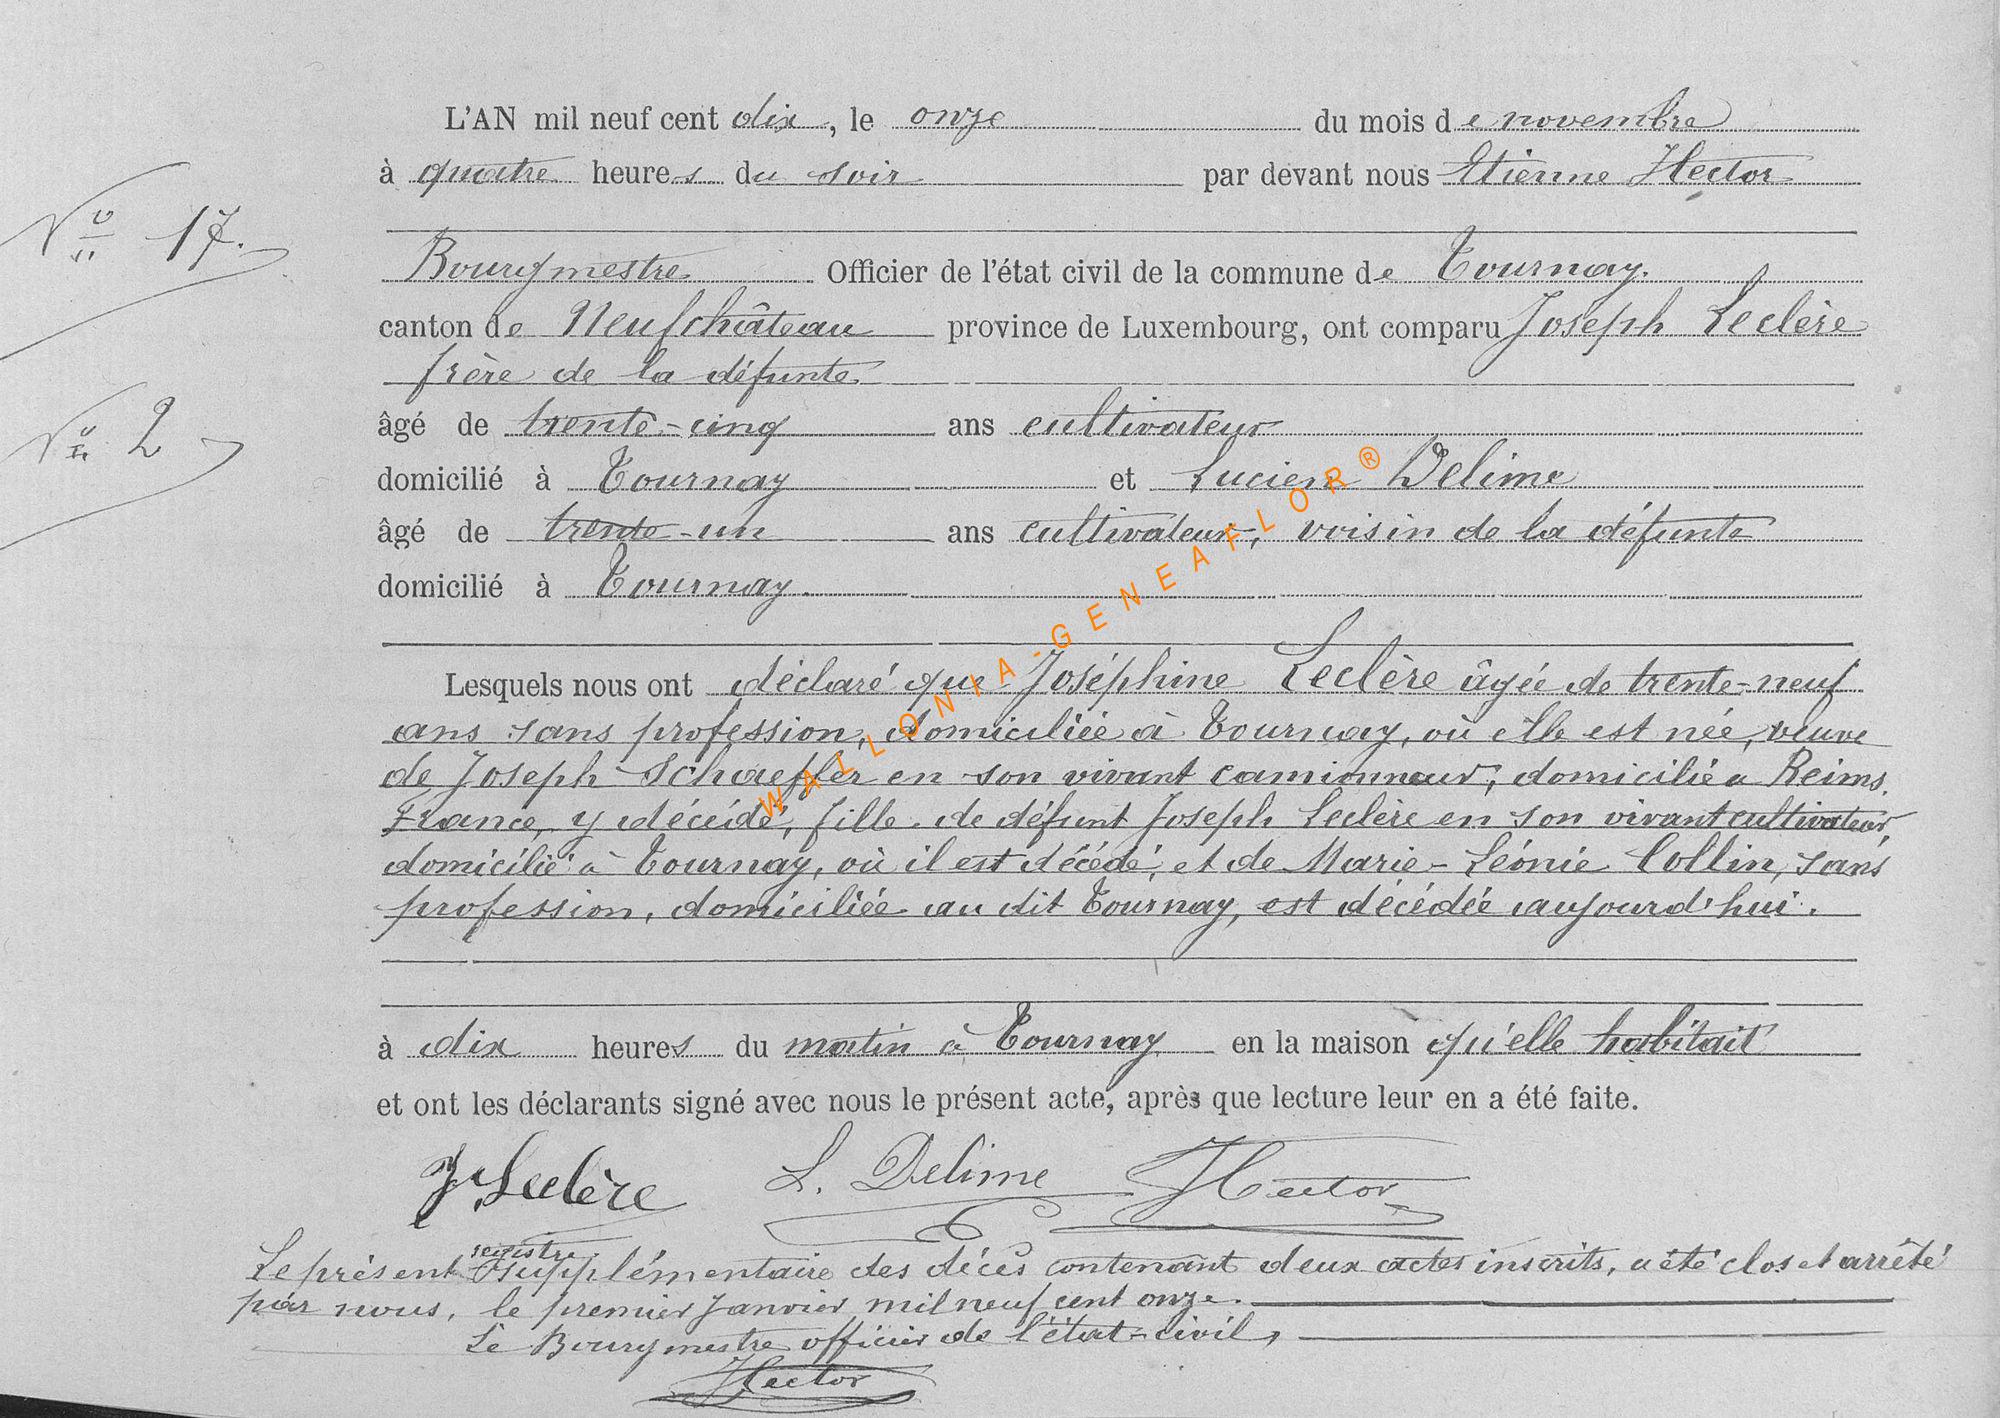 L'AN mil neuf cent dix, le onze du mois de novembre
à quatre heures du soir par devant nous Etienne Hector
No 17.
Bourgmestre Officier de l'état civil de la commune de Tournay.
canton de Neufchâteau province de Luxembourg, ont comparu Joseph Leclère
frère de la défunte
No 2
âgé de trente-cinq ans cultivateur
domicilié à Tournay et Lucien Delime
âgé de trente-un ans cultivateur, voisin de la défunte
domicilié à Tournay.
WALLONIA-GENEAFLOR®
Lesquels nous ont déclaré que Joséphine Leclère âgée de trente-neuf
ans sans profession, domiciliée à Tournay, où elle est née, veuve
de Joseph Schaeffer en son vivant camionneur, domicilié a Reims,
France, y décédé, fille de défunt Joseph Leclère en son vivant cultivateur,
domicilié à Tournay, où il est décédé, et de Marie-Léonie Collin, sans
profession, domiciliée au dit Tournay, est décédée aujourd'hui.
à dix heures du matin à Tournay en la maison qu'elle habitait
et ont les déclarants signé avec nous le présent acte, après que lecture leur en a été faite.
J. Leclère L. Delime Hector
Le présent registre supplémentaire des décès contenant deux actes inscrits, a été clos et arrêté
par nous, le premier Janvier mil neuf cent onze.
Le Bourgmestre officier de l'état-civil,
Hector